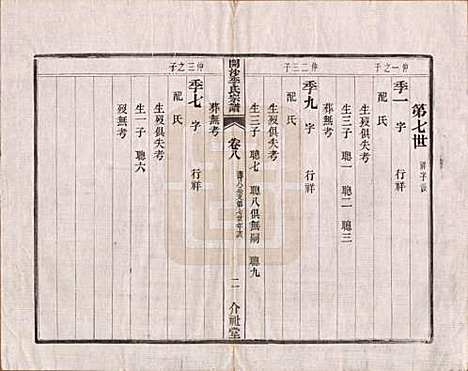 第七世 祥字派
仲一之子
季一 字 行祥
配 氏
生歿俱失考
生三子 聰一 聰二 聰三
葬無考
仲二三子
季九 字 行祥
配 氏
生歿俱失考
生三子 聰七 聰八俱無嗣 聰九
葬無考
開沙李氏宗譜
卷八
二
介祉堂
仲三之子
季七 字 行祥
配 氏
生歿俱失考
生一子 聰六
歿無考